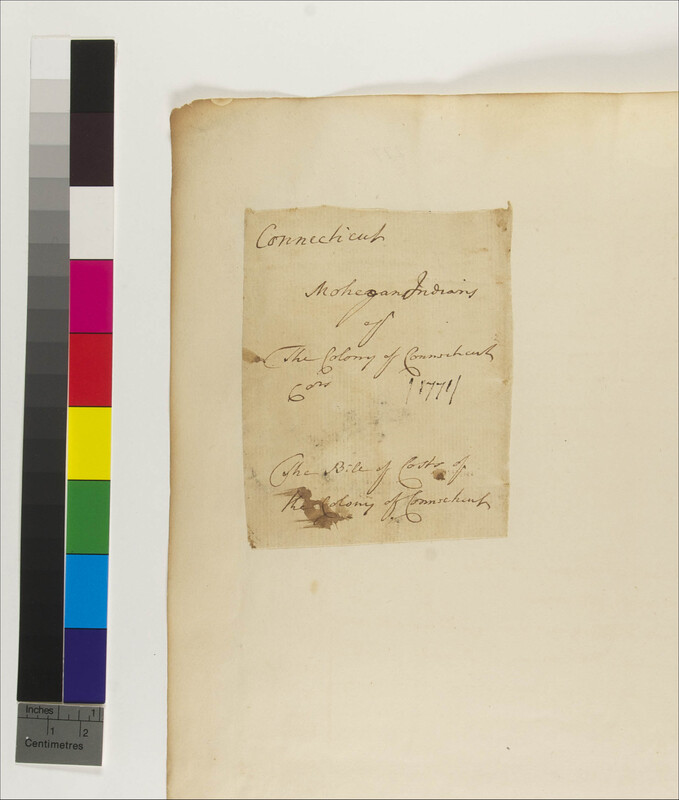 Connecticut
Mohegan Indians
The Colony of Connecticut
1771
The Bill of Costs of
the Colony of Connecticut
Inches 1
1 2
Centimetres